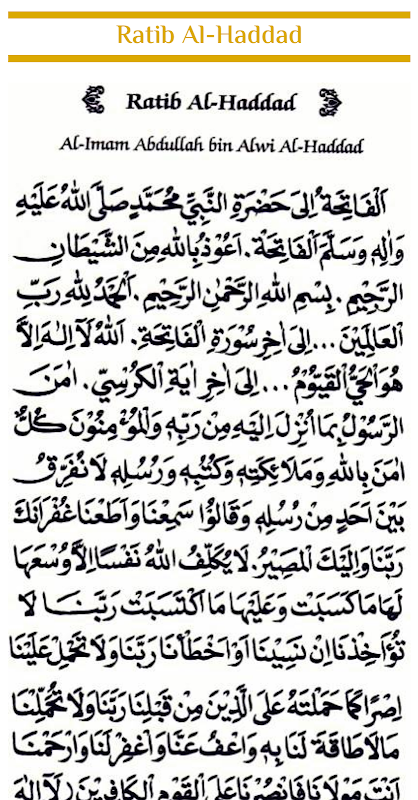 Ratib Al-Haddad
Ratib Al-Haddad
Al-Imam Abdullah bin Alwi Al-Haddad
اَلْفَاتِحَةُ اِلَى حَضْرَةِ النَّبِيِّ مُحَمَّدٍ صَلَّى اللهُ عَلَيْهِ
وَاٰلِهِ وَسَلَّمَ اَلْفَاتِحَةْ. اَعُوْذُ بِاللهِ مِنَ الشَّيْطَانِ
الرَّجِيْمِ. بِسْمِ اللهِ الرَّحْمٰنِ الرَّحِيْمِ. اَلْحَمْدُ لِلّٰهِ رَبِّ
الْعَالَمِيْنَ ... اِلَى اٰخِرِ سُوْرَةِ الْفَاتِحَةِ. اَللهُ لَآ اِلٰهَ اِلَّا
هُوَ الْحَيُّ الْقَيُّوْمُ ... اِلَى اٰخِرِ اٰيَةِ الْكُرْسِيِّ. اٰمَنَ
الرَّسُوْلُ بِمَا اُنْزِلَ اِلَيْهِ مِنْ رَبِّهِ وَالْمُؤْمِنُوْنَ كُلٌّ
اٰمَنَ بِاللهِ وَمَلَائِكَتِهِ وَكُتُبِهِ وَرُسُلِهِ لَا نُفَرِّقُ
بَيْنَ اَحَدٍ مِنْ رُسُلِهِ وَقَالُوْا سَمِعْنَا وَاَطَعْنَا غُفْرَانَكَ
رَبَّنَا وَاِلَيْكَ الْمَصِيْرُ. لَا يُكَلِّفُ اللهُ نَفْسًا اِلَّا وُسْعَهَا
لَهَا مَا كَسَبَتْ وَعَلَيْهَا مَا اكْتَسَبَتْ رَبَّنَا لَا
تُؤَاخِذْنَا اِنْ نَسِيْنَا اَوْ اَخْطَأْنَا رَبَّنَا وَلَا تَحْمِلْ عَلَيْنَا
اِصْرًا كَمَا حَمَلْتَهُ عَلَى الَّذِيْنَ مِنْ قَبْلِنَا رَبَّنَا وَلَا تُحَمِّلْنَا
مَا لَا طَاقَةَ لَنَا بِهِ وَاعْفُ عَنَّا وَاغْفِرْ لَنَا وَارْحَمْنَا
اَنْتَ مَوْلَانَا فَانْصُرْنَا عَلَى الْقَوْمِ الْكَافِرِيْنَ. لَا اِلٰهَ